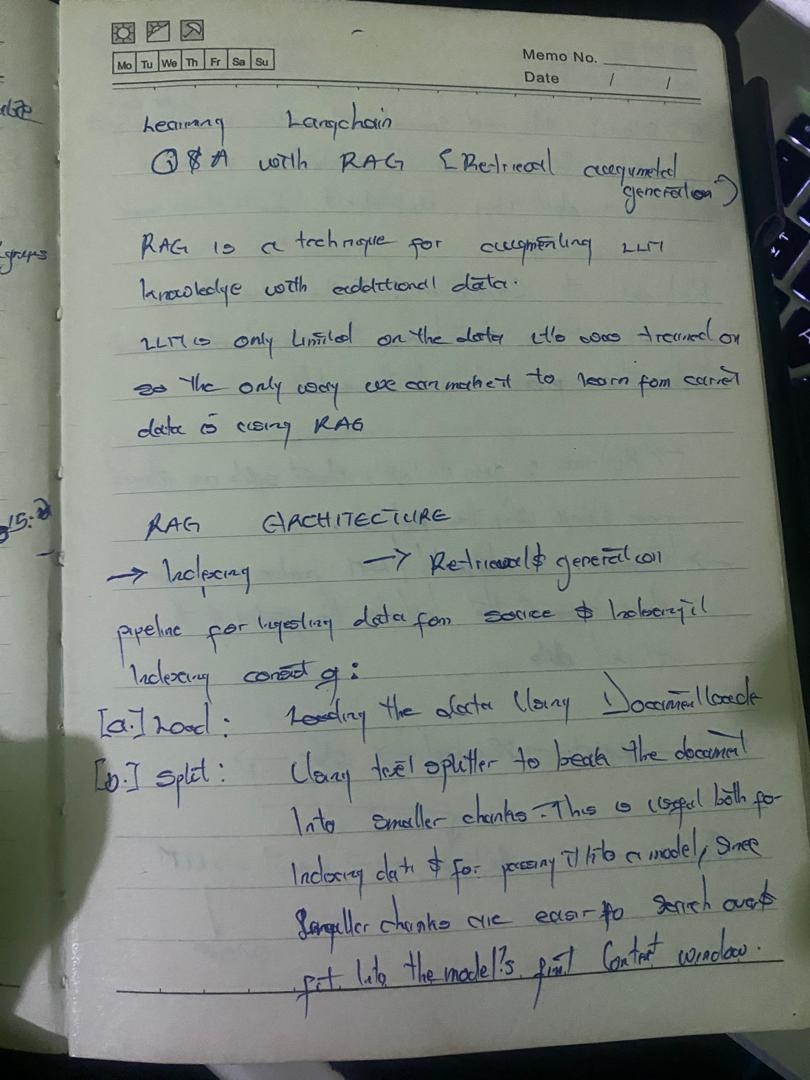 Mo Tu We Th Fr Sa Su
Memo No.
Date / /
Learning Langchain
Q $ A with RAG {Retrieval augumented
generation}
RAG is a technique for augmenting LLM
knowledge with additional data.
LLM is only limited on the data it's was trained on
so the only way we can make it to learn from
data is using RAG
RAG ARCHITECTURE
→ Indexing → Retrieval $ generation
pipeline for ingesting data from source $ Indexing it
Indexing consist of :
[a.] Load : Loading the data Using Documentloade
[b.] split : Using text splitter to break the document
Into smaller chunks. This is useful both for
Indexing data $ for passing it into a model, since
larger chunks are easier to search over $
fit Into the model's finit Context window.
groups
15: